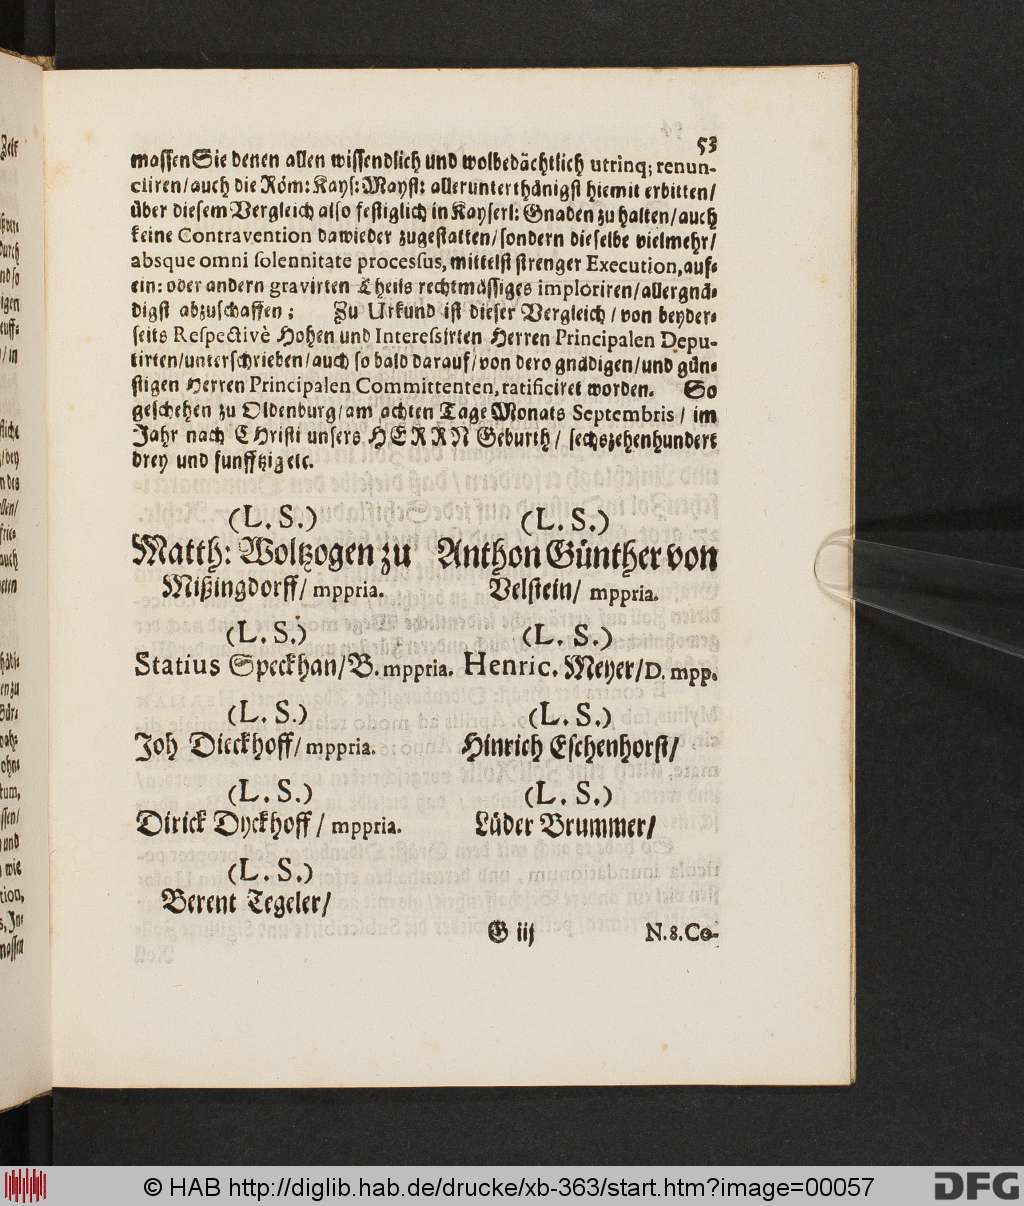 53
massen Sie denen allen wissendlich und wolbedächtlich utrinq; renun-
ciiren/ auch die Röm: Kays: Mayst: allerunterthänigst hiemit erbitten/
über diesem Vergleich also festiglich in Kayserl: Gnaden zu halten/ auch
keine Contravention dawieder zugestatten/ sondern dieselbe vielmehr/
absque omni solennitate processus, mittelst strenger Execution, auf-
ein: oder andern gravirten Theils rechtmässiges imploriren/ allergnä-
digst abzuschaffen; Zu Urkund ist dieser Vergleich/ von beyder-
seits Respectivè Hohen und Interessirten Herren Principalen Depu-
tirten/ unterschrieben/ auch so bald darauf/ von dero gnädigen/ und gün-
stigen Herren Principalen Committenten, ratificiret worden. So
geschehen zu Oldenburg/ am achten Tage Monats Septembris/ im
Jahr nach CHristi unsers HERRN Geburth/ sechszehenhundert
drey und funfftzig etc.
(L. S.) (L. S.)
Matth: Woltzogen zu Anthon Günther von
Mißingdorff/ mppria. Velstein/ mppria.
(L. S.) (L. S.)
Statius Speckhan/ B. mppria. Henric. Meyer/ D. mpp.
(L. S.) (L. S.)
Joh Dieckhoff/ mppria. Hinrich Eschenhorst/
(L. S.) (L. S.)
Dirick Dyckhoff/ mppria. Lüder Brummer/
(L. S.)
Berent Tegeler/
G iij N. 8. Co-
© HAB http://diglib.hab.de/drucke/xb-363/start.htm?image=00057
DFG